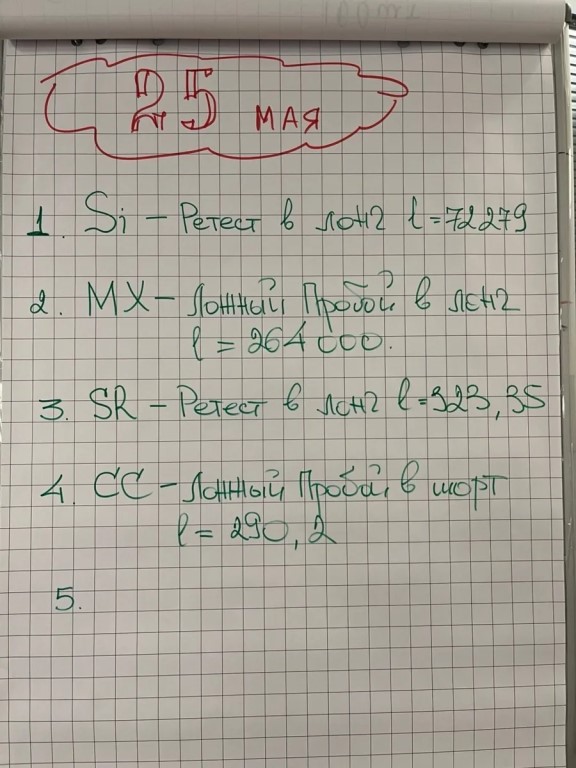 25 мая
1. Si – Ретест в лонг l = 72279
2. MX – Ложный Пробой в лонг
l = 264 000.
3. SR – Ретест в лонг l = 323,35
4. CC – Ложный Пробой в шорт
l = 290,2
5.